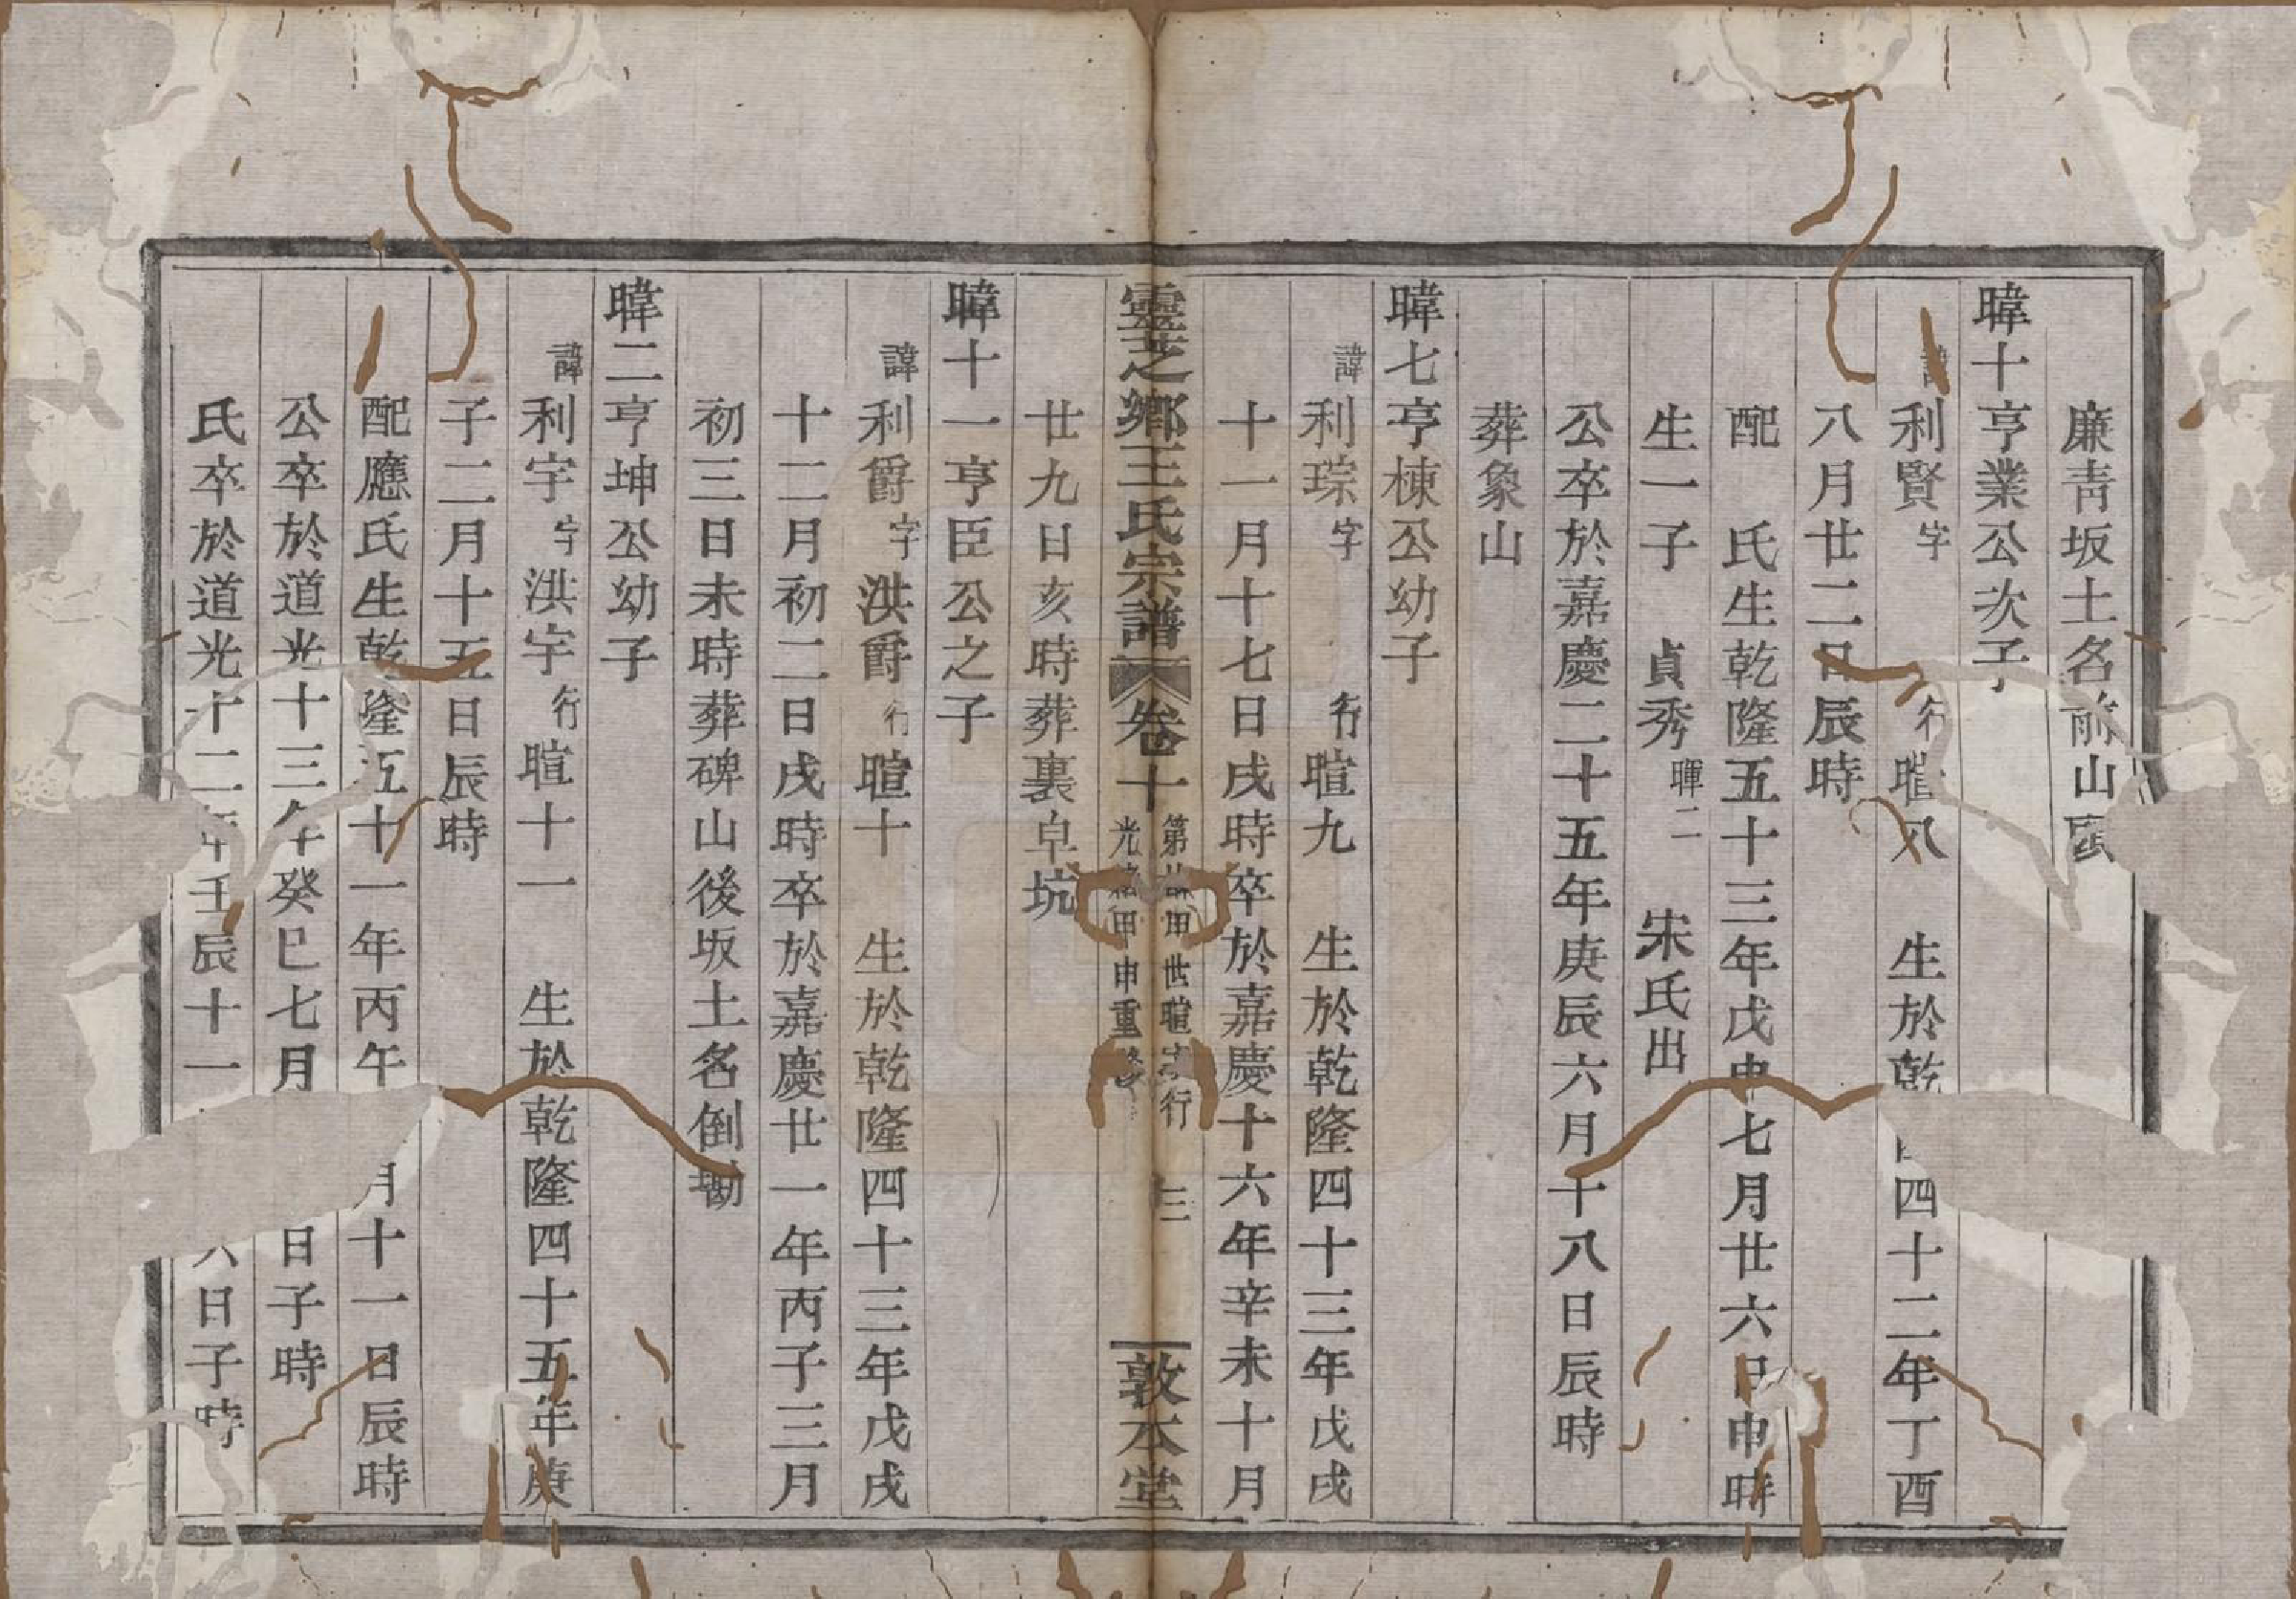 廉靑坂土名前山
暐十亨業公次子
諱利賢字 行暄八 生於乾隆四十二年丁酉
八月廿二日辰時
配 氏生乾隆五十三年戊申七月廿六日申時
生一子 貞秀暉二 宋氏出
公卒於嘉慶二十五年庚辰六月十八日辰時
葬象山
暐七亨棟公幼子
諱利琮字 行暄九 生於乾隆四十三年戊戌
十一月十七日戌時卒於嘉慶十六年辛未十月
靈芝鄉王氏宗譜 卷十 第廿世暄字行 三
光緒甲申重修 敦本堂
廿九日亥時葬裏阜坑
暐十一亨臣公之子
諱利爵字洪爵行暄十 生於乾隆四十三年戊戌
十二月初二日戌時卒於嘉慶廿一年丙子三月
初三日未時葬碑山後坂土名倒塝
暐二亨坤公幼子
諱利宇字洪宇行暄十一 生於乾隆四十五年庚
子二月十五日辰時
配應氏生乾隆五十一年丙午月十一日辰時
公卒於道光十三年癸巳七月日子時
氏卒於道光十二年壬辰十一八日子時